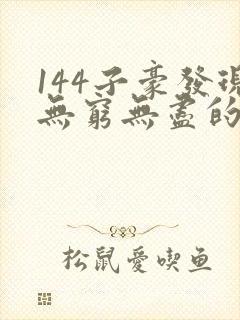 144子豪發現
無窮無盡的
松鼠愛喫鱼